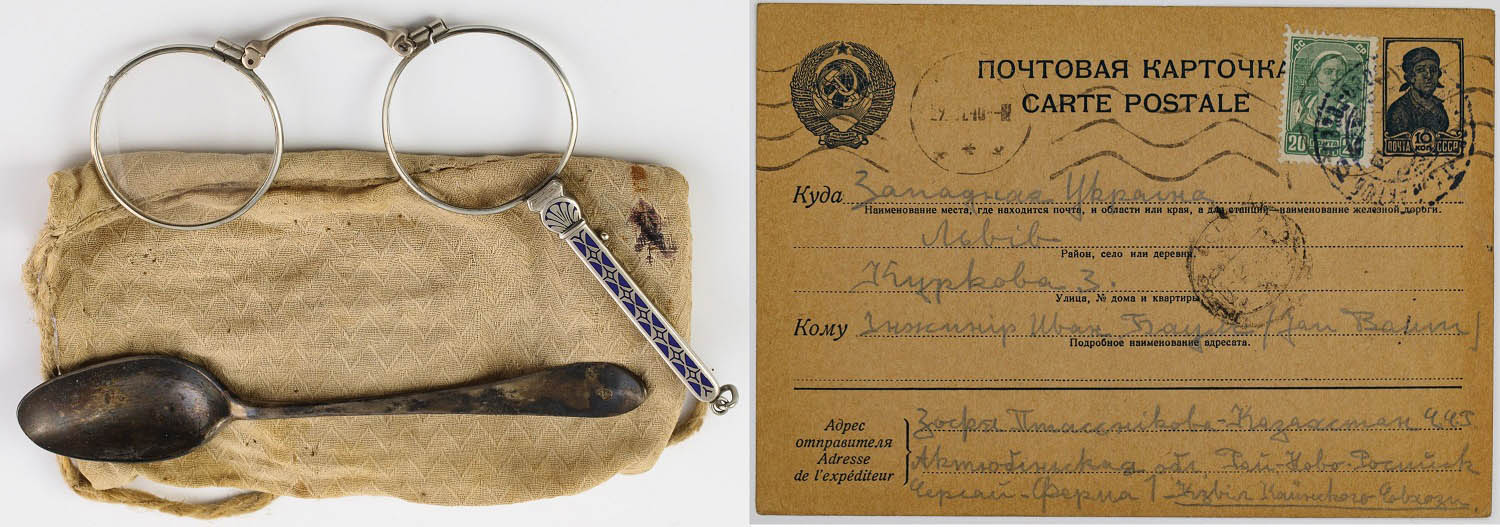 ПОЧТОВАЯ КАРТОЧКА
CARTE POSTALE
СС СР
20
ПОЧТА
10
КОП.
ПОЧТА СССР
Куда Западная Украіна
Наименование места, где находится почта, и области или края, а для станции—наименование железной дороги.
Львів
Район, село или деревня.
Куркова 3.
Улица, № дома и квартиры
Кому Інжинір Иван Баум (Jan Baum)
Подробное наименование адресата.
Адрес
отправителя
Adresse
de l'expéditeur
Зофья Казахстан ССР
Актюбинская обл Рай-Ново-Росийск
Ферма 1